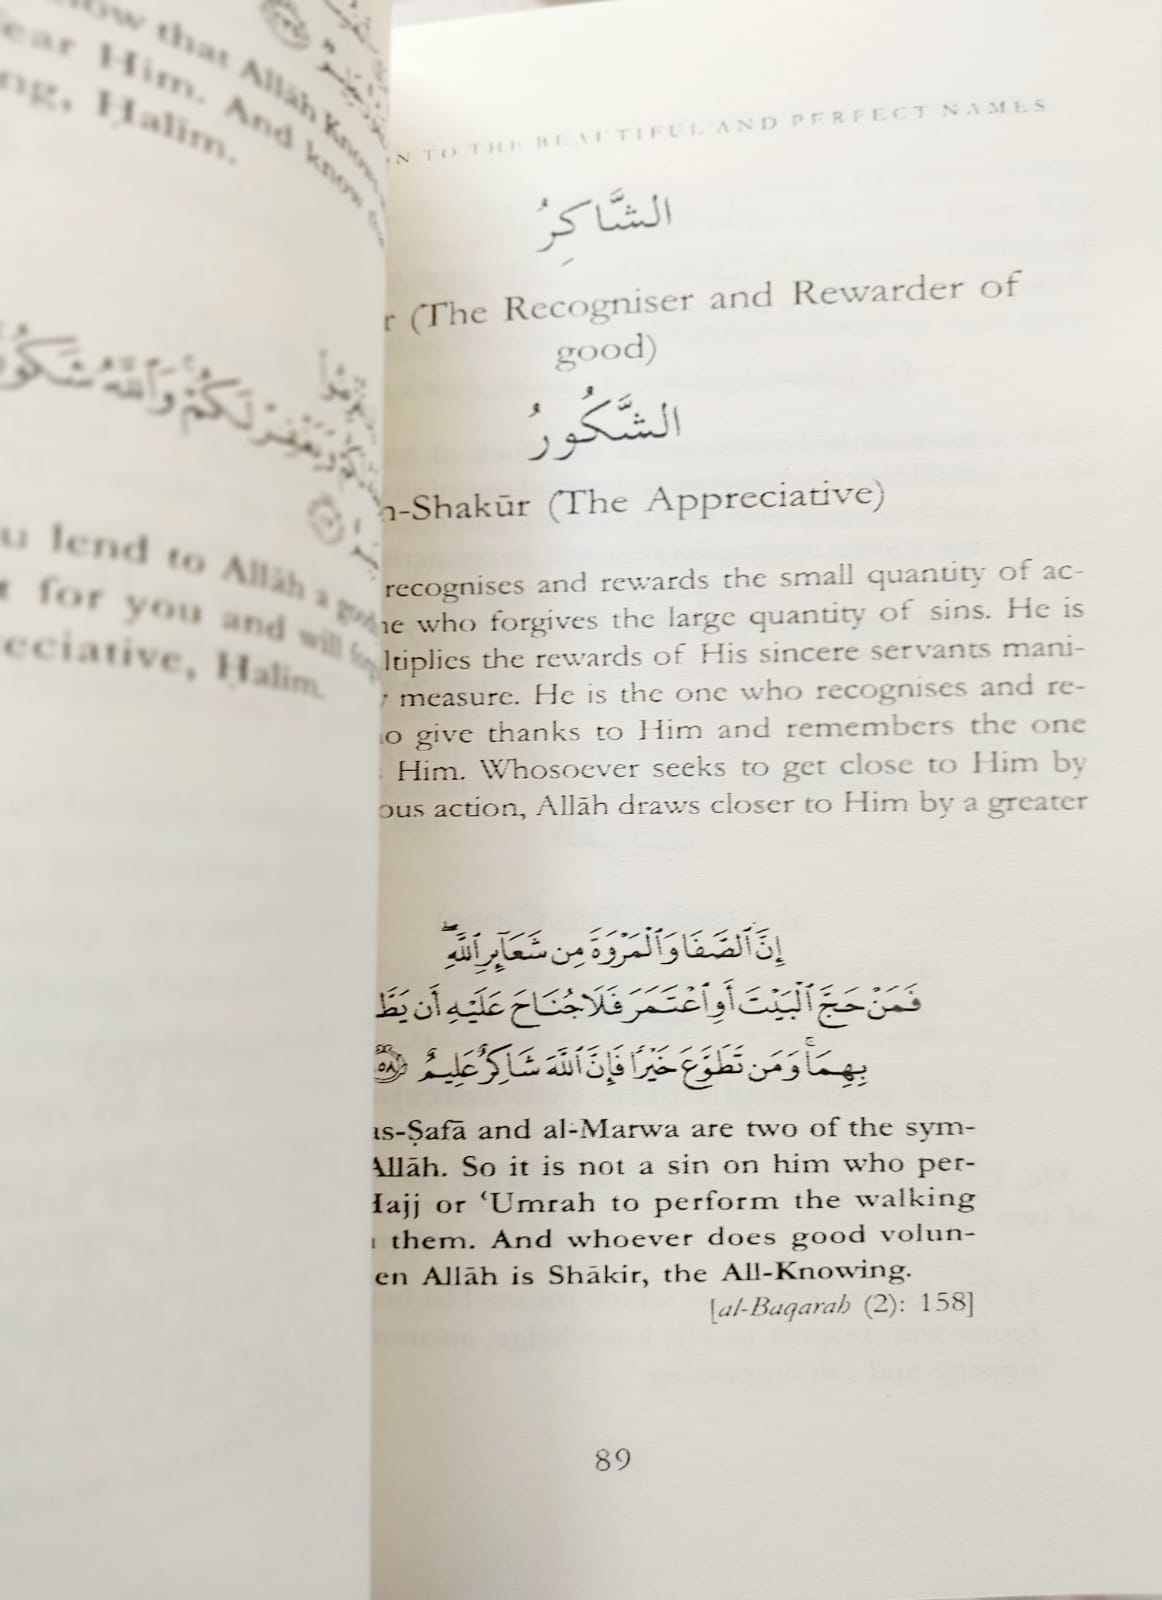 now that Allāh Knows
ear Him. And know
ng, Ḥalīm.
لَكُمْ وَٱللَّهُ شَكُورٌ
وَيَغْفِرْ
u lend to Allāh a
t for you and will
eciative, Ḥalīm.
N TO THE BEAUTIFUL AND PERFECT NAMES
الشَّاكِرُ
r (The Recogniser and Rewarder of
good)
الشَّكُورُ
-Shakūr (The Appreciative)
recognises and rewards the small quantity of ac-
ne who forgives the large quantity of sins. He is
ltiplies the rewards of His sincere servants mani-
measure. He is the one who recognises and re-
o give thanks to Him and remembers the one
Him. Whosoever seeks to get close to Him by
ous action, Allāh draws closer to Him by a greater
إِنَّ ٱلصَّفَا وَٱلْمَرْوَةَ مِن شَعَآئِرِ ٱللَّهِ ۖ
فَمَنْ حَجَّ ٱلْبَيْتَ أَوِ ٱعْتَمَرَ فَلَا جُنَاحَ عَلَيْهِ أَن يَطَّ
بِهِمَا ۚ وَمَن تَطَوَّعَ خَيْرًا فَإِنَّ ٱللَّهَ شَاكِرٌ عَلِيمٌ ٥٨
as-Ṣafā and al-Marwa are two of the sym-
Allāh. So it is not a sin on him who per-
Hajj or ‘Umrah to perform the walking
them. And whoever does good volun-
en Allāh is Shākir, the All-Knowing.
[al-Baqarah (2): 158]
89